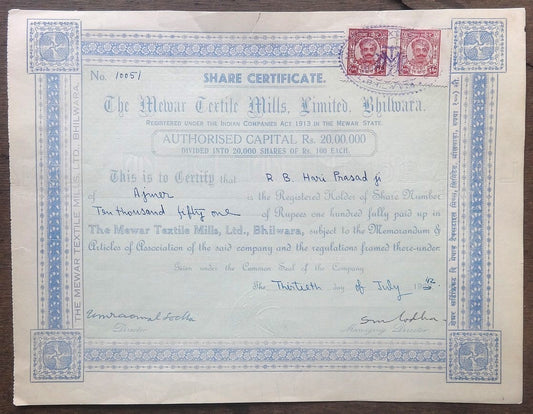 No. 10051
SHARE CERTIFICATE.
The Mewar Textile Mills, Limited, Bhilwara.
REGISTERED UNDER THE INDIAN COMPANIES ACT 1913 IN THE MEWAR STATE.
AUTHORISED CAPITAL RS. 20,00,000
DIVIDED INTO 20,000 SHARES OF RS. 100 EACH.
This is to Certify that R. B. Hari Prasad ji
of Ajmer is the Registered Holder of Share Number
Ten thousand fifty one of Rupees one hundred fully paid up in
The Mewar Textile Mills, Ltd., Bhilwara, subject to the Memorandum &
Articles of Association of the said company and the regulations framed there-under.
Given under the Common Seal of the Company
The Thirtieth day of July 1942
Director
Managing Director
THE MEWAR TEXTILE MILLS, LTD. BHILWARA.